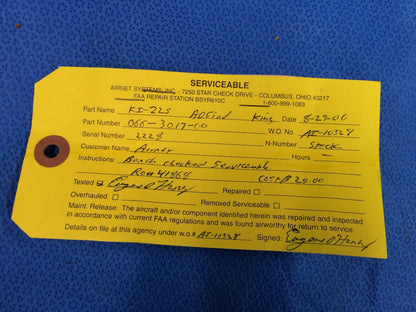 SERVICEABLE
AIRNET SYSTEMS, INC - 7250 STAR CHECK DRIVE - COLUMBUS, OHIO 43217
FAA REPAIR STATION BSYR610C 1-800-999-1083
Part Name KI-225 ADC ind King Date 8-29-06
Part Number 066-3017-00 W.O. No. AI-10328
Serial Number 2228 N-Number Stock
Customer Name Airnet Hours -
Instructions: Bench checked Serviceable
Tested Repaired
Overhauled Removed Serviceable
Maint. Release: The aircraft and/or component identified herein was repaired and inspected
in accordance with current FAA regulations and was found airworthy for return to service.
Details on file at this agency under w.o.# AI-10328 Signed: